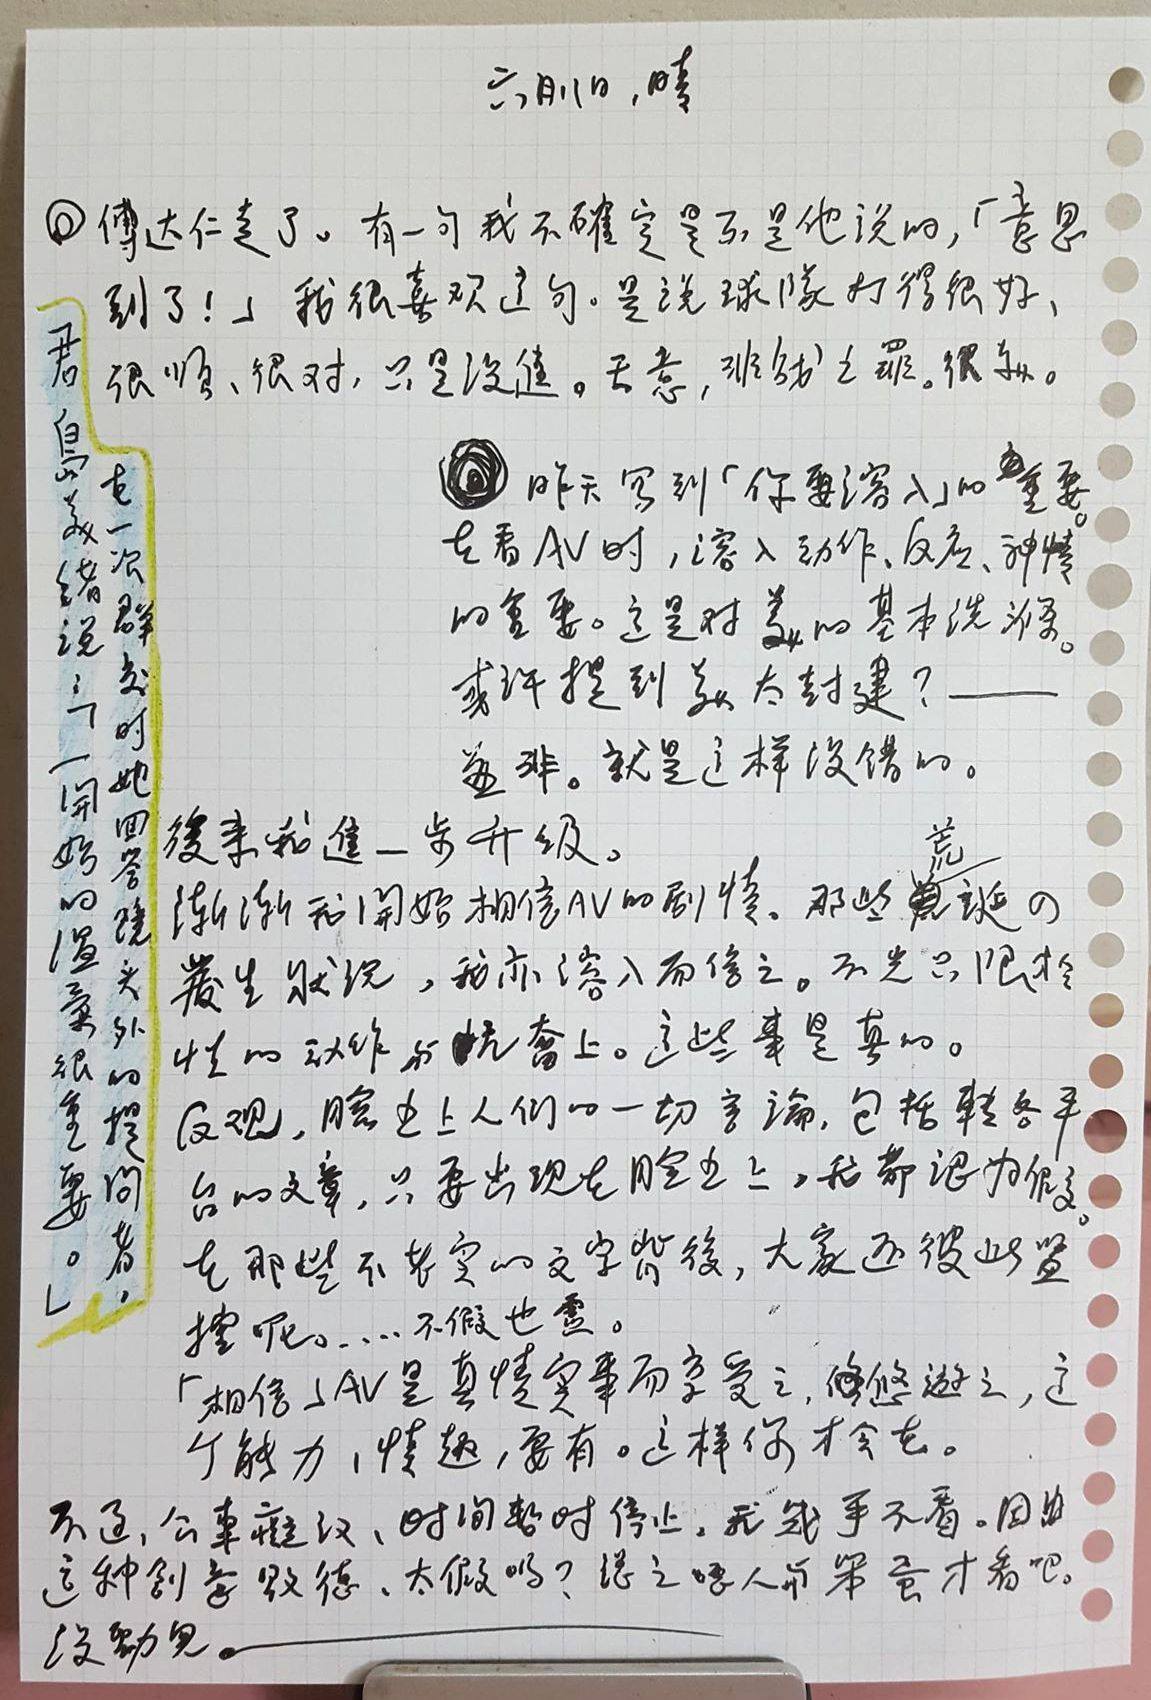 六月11日，晴
◎傅达仁走了。有一句我不確定是不是他说的，「意思
到了！」我很喜欢这句。是说球隊打得很好、
很順、很对，只是没進。天意，非战之罪。很美。
昨天写到「你要溶入」的重要。
在看AV时，溶入动作、反应、神情
的重要。这是对美的基本洗滌。
或许提到美太封建？——
並非。就是这样没错的。
後来我進一步升级。
漸漸我開始相信AV的剧情。那些荒誕の
發生状况，我亦溶入而信之。不光只限於
性的动作与亢奮上。这些事是真的。
反观，脸书上人们的一切言論，包括轉各平
台的文章，只要出现在脸书上，我都认为假。
在那些不老实的文字背後，大家还彼此
呢。....不假也虚。
「相信」AV是真情实事而享受之，悠悠遊之，这
个能力，情趣，要有。这样你才会在。
不过，公車癡汉、时间暂时停止，我幾乎不看。因为
这种剧毫毀德、太假吗？总之 人与笨蛋才看吧。
没勁见。
君島美緒说：「一開始的温柔很重要。」
在一次群交时她回答鏡头外的提问者。